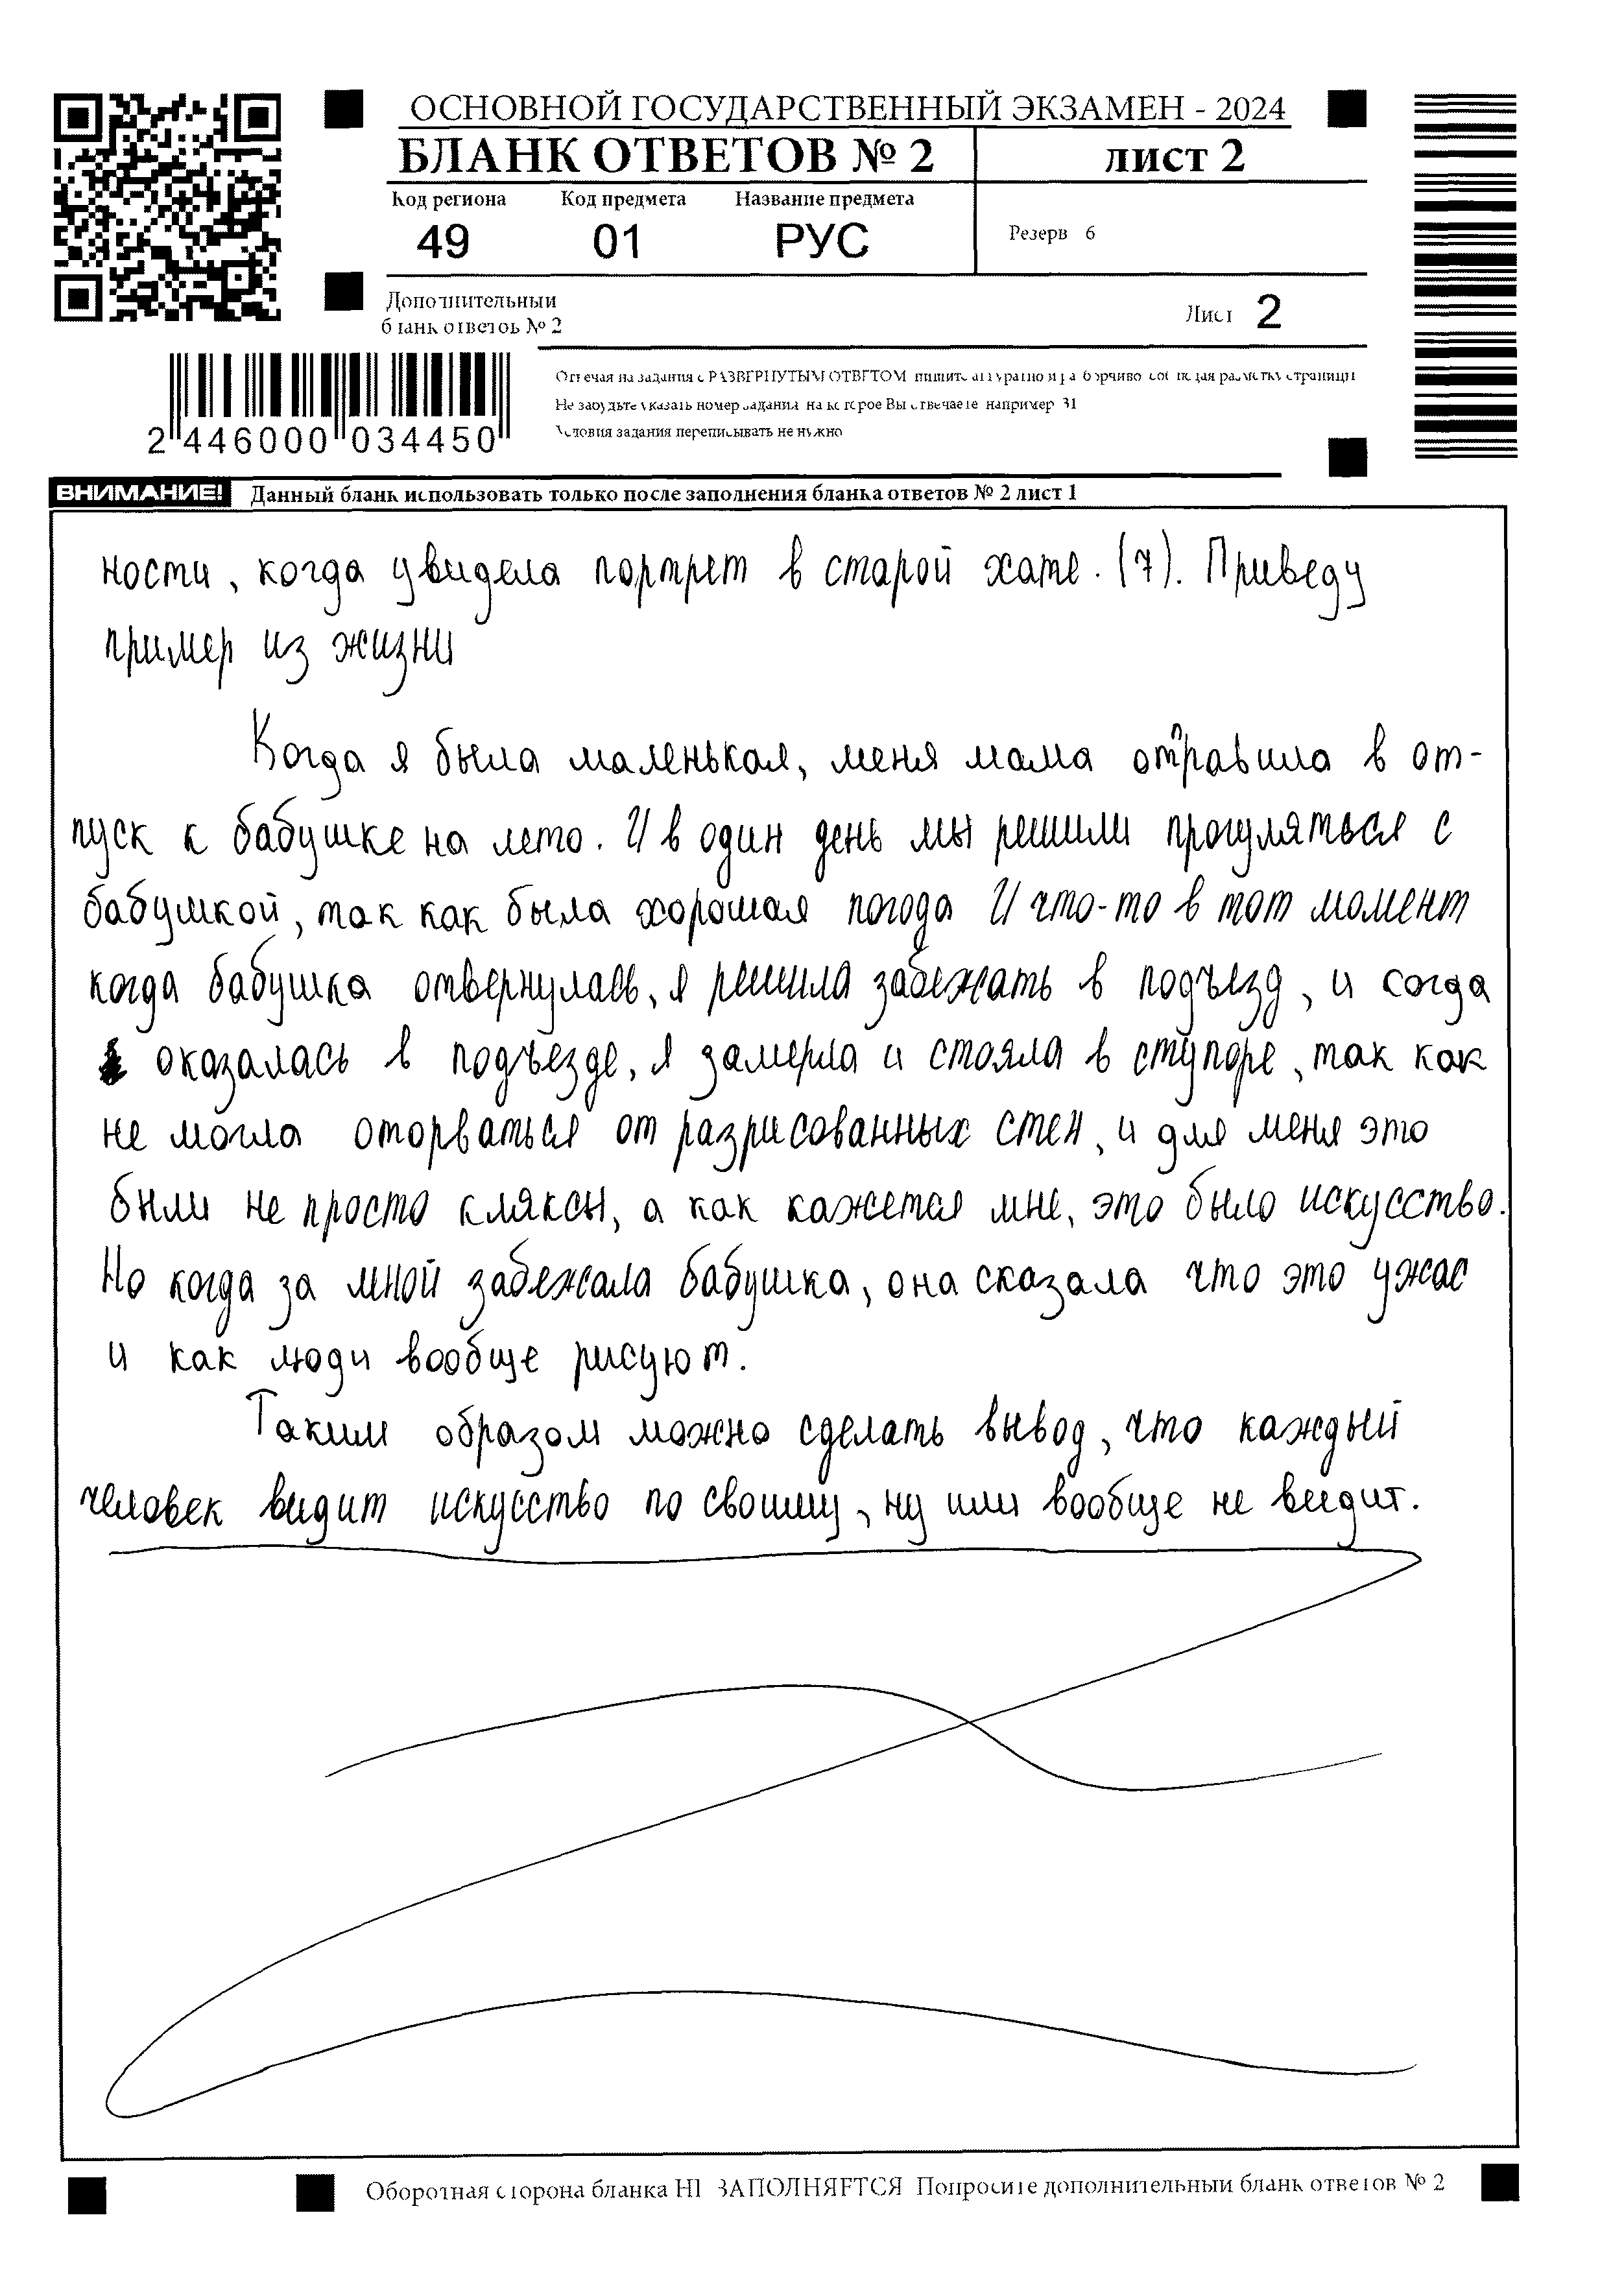 ОСНОВНОЙ ГОСУДАРСТВЕННЫЙ ЭКЗАМЕН - 2024
БЛАНК ОТВЕТОВ № 2 лист 2
Код региона Код предмета Название предмета
49 01 РУС
Резерв 6
Дополнительный
бланк ответов № 2
Лист 2
Отвечая на задания с РАЗВЕРНУТЫМ ОТВЕТОМ пишите аккуратно и разборчиво соблюдая разметку страницы
Не забудьте указать номер задания на которое Вы отвечаете например 31
Условия задания переписывать не нужно
2 446000 034450
ВНИМАНИЕ! Данный бланк использовать только после заполнения бланка ответов № 2 лист 1
ности, когда увидела портрет в старой хате. (7). Приведу
пример из жизни
Когда я была маленькая, меня мама отправила в от-
пуск к бабушке на лето. И в один день мы решили прогуляться с
бабушкой, так как была хорошая погода И что-то в тот момент
когда бабушка отвернулась, я решила забежать в подъезд, и согда
оказалась в подъезде, я замерла и стояла в ступоре, так как
не могла оторваться от разрисованных стен, и для меня это
были не просто кляксы, а как кажется мне, это было искусство.
Но когда за мной забежала бабушка, она сказала что это ужас
и как люди вообще рисуют.
Таким образом можно сделать вывод, что каждый
человек видит искусство по своиму, ну или вообще не видит.
Оборотная сторона бланка НЕ ЗАПОЛНЯЕТСЯ Попросите дополнительный бланк ответов № 2